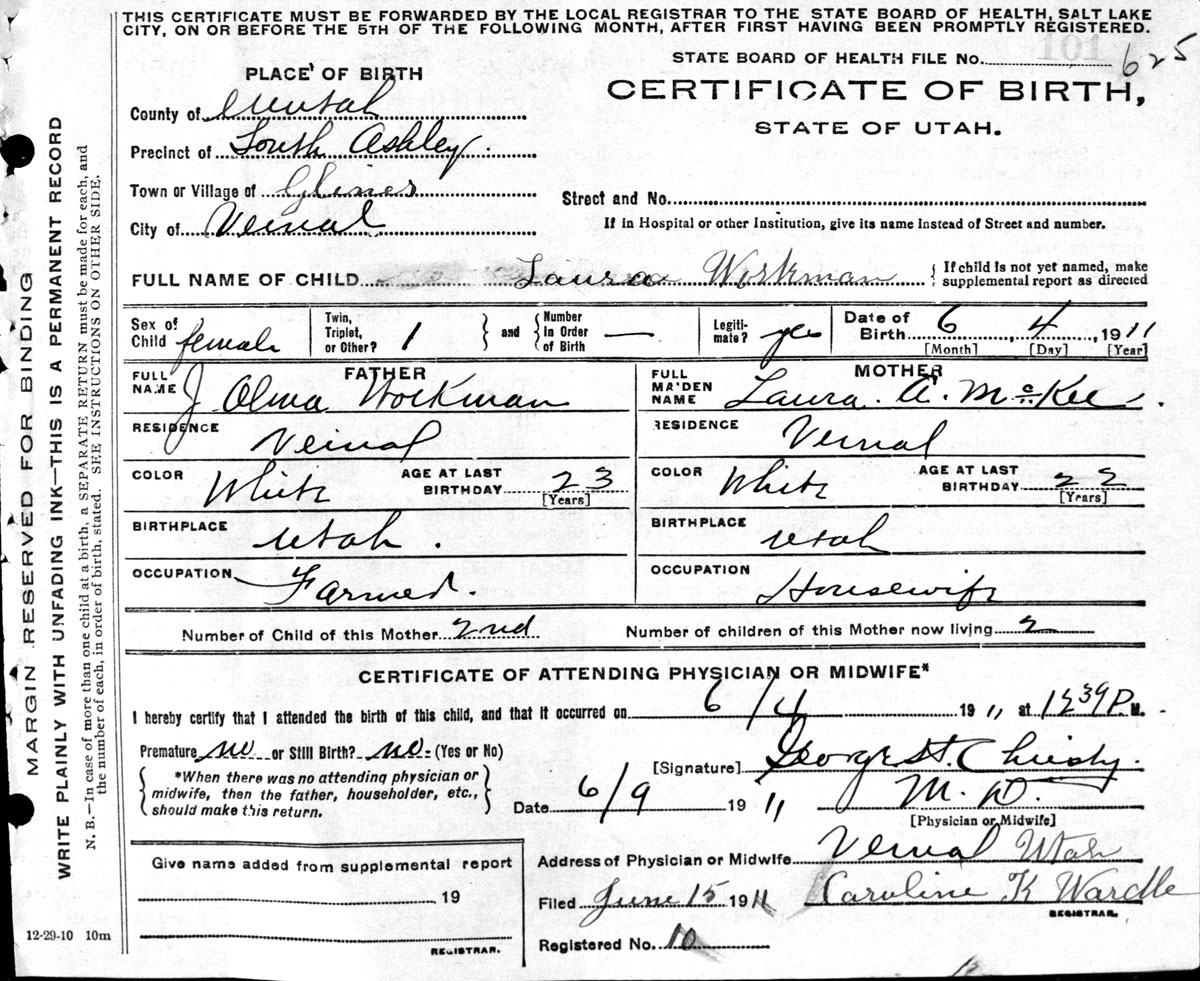 THIS CERTIFICATE MUST BE FORWARDED BY THE LOCAL REGISTRAR TO THE STATE BOARD OF HEALTH, SALT LAKE
CITY, ON OR BEFORE THE 5TH OF THE FOLLOWING MONTH, AFTER FIRST HAVING BEEN PROMPTLY REGISTERED.
101
STATE BOARD OF HEALTH FILE No. 625
CERTIFICATE OF BIRTH,
STATE OF UTAH.
PLACE OF BIRTH
County of Uintah
Precinct of South Ashley.
Town or Village of Glines
City of Vernal
Street and No.
If in Hospital or other Institution, give its name instead of Street and number.
FULL NAME OF CHILD Laura Workman { If child is not yet named, make supplemental report as directed
Sex of Child female
Twin, Triplet, or Other? 1 } and { Number in Order of Birth —
Legitimate? yes
Date of Birth 6 4, 1911
[Month] [Day] [Year]
FATHER
FULL NAME J. Alma Workman
RESIDENCE Vernal
COLOR White AGE AT LAST BIRTHDAY 23 [Years]
BIRTHPLACE Utah.
OCCUPATION Farmer.
MOTHER
FULL MAIDEN NAME Laura. A. McKee.
RESIDENCE Vernal
COLOR White AGE AT LAST BIRTHDAY 22 [Years]
BIRTHPLACE Utah
OCCUPATION Housewife
Number of Child of this Mother 2nd Number of children of this Mother now living 2
CERTIFICATE OF ATTENDING PHYSICIAN OR MIDWIFE*
I hereby certify that I attended the birth of this child, and that it occurred on 6/4 1911 at 1239 P. M.
Premature no or Still Birth? no. (Yes or No)
{ *When there was no attending physician or
midwife, then the father, householder, etc.,
should make this return. }
[Signature] George St. Christy.
Date 6/9 1911 M. D.
[Physician or Midwife]
Address of Physician or Midwife Vernal Utah
Filed June 15 1911 Caroline K Wardle
REGISTRAR.
Registered No. 10
Give name added from supplemental report
19
REGISTRAR.
12-29-10 10m
MARGIN RESERVED FOR BINDING
WRITE PLAINLY WITH UNFADING INK—THIS IS A PERMANENT RECORD
N. B.—In case of more than one child at a birth, a SEPARATE RETURN must be made for each, and
the number of each, in order of birth, stated. SEE INSTRUCTIONS ON OTHER SIDE.